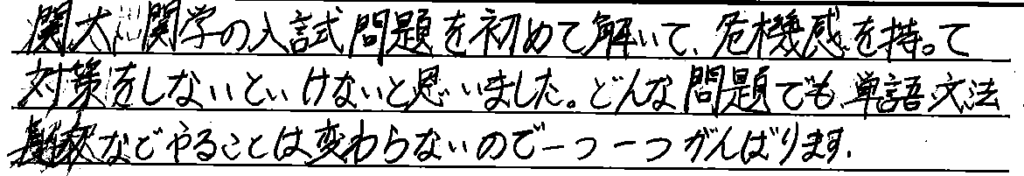 関大、関学の入試問題を初めて解いて、危機感を持って
対策をしないといけないと思いました。どんな問題でも単語文法
解釈などやることは変わらないので一つ一つがんばります。